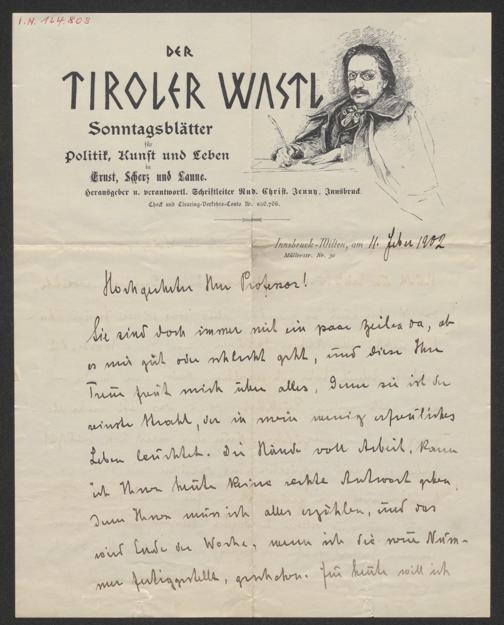 I.N. 164.808
DER
TIROLER WASTL
Sonntagsblätter
für
Politik, Kunst und Leben
in
Ernst, Scherz und Laune.
Herausgeber u. verantwortl. Schriftleiter Rud. Christ. Jenny, Innsbruck.
Check und Clearing-Verkehrs-Conto Nr. 850.766.
Innsbruck-Wilten, am 11. Feber 1902
Müllerstr. Nr. 30
Hochgeehrter Herr Professor!
Sie sind doch immer mit ein paar Zeilen da, ob
es mir gut oder schlecht geht, und diese Ihre
Treue freut mich über alles, denn sie ist der
reinste Strahl, der in mein wenig erfreuliches
Leben leuchtet. Die Hände voll Arbeit, kann
ich Ihnen heute keine rechte Antwort geben,
denn Ihnen muss ich alles erzählen, und das
wird Ende der Woche, wenn ich die neue Num-
mer fertiggestellt, geschehen. Für heute will ich